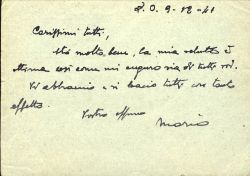 P.O. 9-12-41
Carissimi tutti,
Sto molto bene, la mia salute è
ottima così come mi auguro sia di tutti voi.
Vi abbraccio e vi bacio tutti con tanto
affetto.
Vostro
Mario